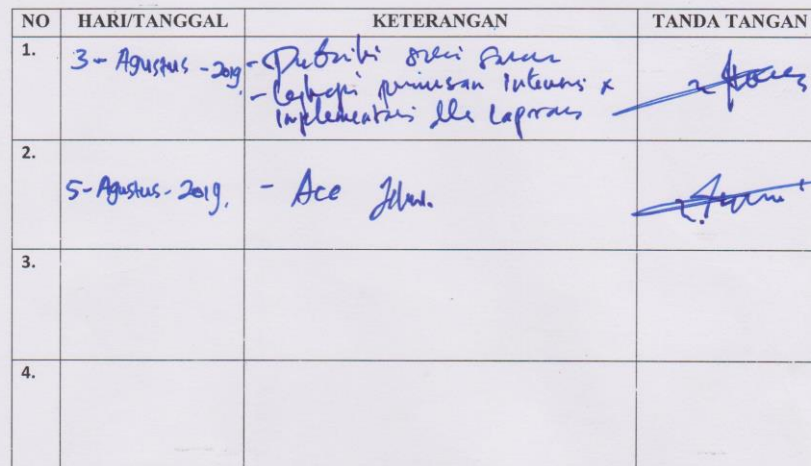 NO HARI/TANGGAL KETERANGAN TANDA TANGAN
1. 3 - Agustus - 2019 - Perbaiki sesuai saran
- Lengkapi penulisan Intervensi &
Implementasi dlm Laporan
2. 5 - Agustus - 2019. - Acc
3.
4.